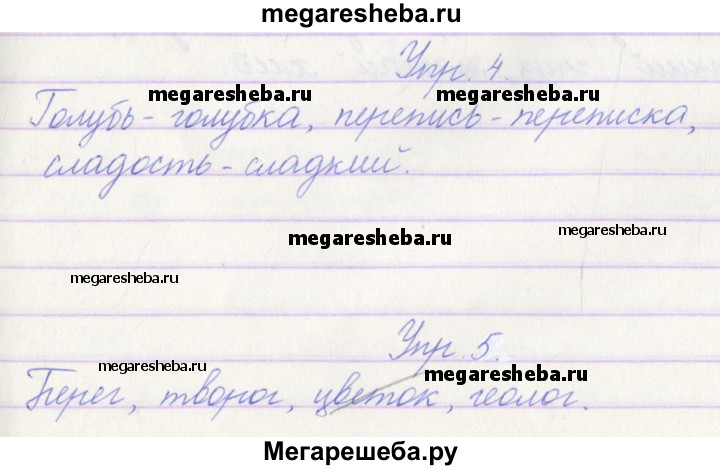 megaresheba.ru
Упр. 4.
megaresheba.ru megaresheba.ru
Голубь - голубка, перепись - переписка,
сладость - сладкий.
megaresheba.ru
megaresheba.ru
megaresheba.ru
Упр. 5.
megaresheba.ru
megaresheba.ru
Берег, творог, цветок, геолог.
Мегарешеба.ру